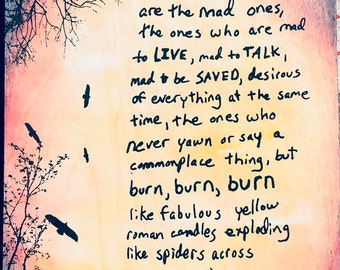 are the mad ones,
the ones who are mad
to LIVE, mad to TALK,
mad to be SAVED, desirous
of everything at the same
time, the ones who
never yawn or say a
commonplace thing, but
burn, burn, burn
like fabulous yellow
roman candles exploding
like spiders across